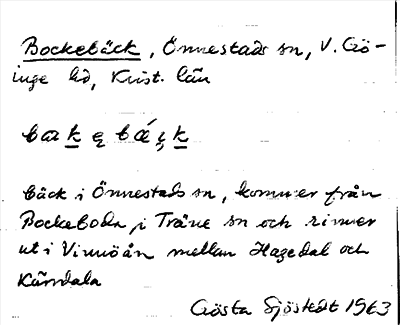 Bockebäck, Önnestads sn, V. Gö-
inge hd, Krist. län
bäck i Önnestads sn, kommer från
Bockeboda i Träne sn och rinner
ut i Vinnöån mellan Hagedal och
Kärrdala
Gösta Sjöstedt 1963